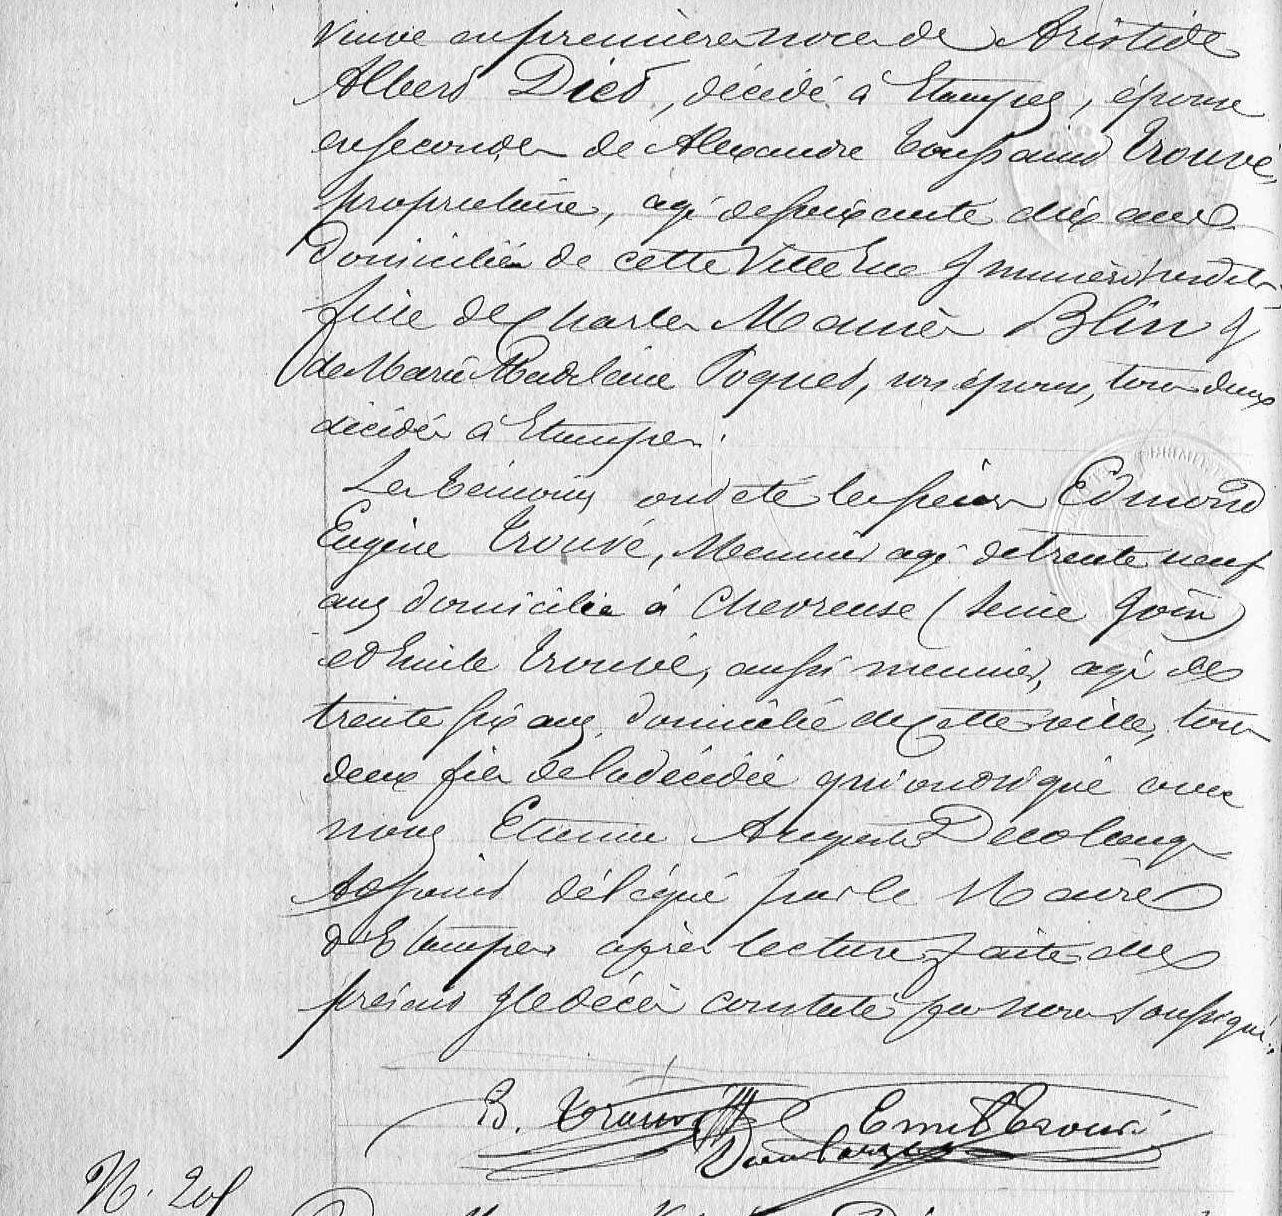 veuve en premières noces de Aristide
Albert Diet, décédé à Etampes, épouse
en secondes de Alexandre Toussaint Trouvé,
propriétaire, agé de soixante dix ans
domicilié de cette Ville Rue
fille de Charles Mamès Blin &
de Marie Madelaine Poquet, son épouse, tous deux
décédés à Etampes.
Les témoins ont été les sieurs Edmond
Eugène Trouvé, Meunier agé de trente neuf
ans domicilié à Chevreuse (Seine & Oise)
et Emile Trouvé, aussi meunier, agé de
trente six ans, domicilié de cette ville, tous
deux fils de la décédée qui ont signé avec
nous Etienne Auguste
Adjoint délégué par le Maire
d'Etampes après lecture faite des
présent & le décès constaté par nous soussigné.
E. Trouvé Emile Trouvé
N. 201